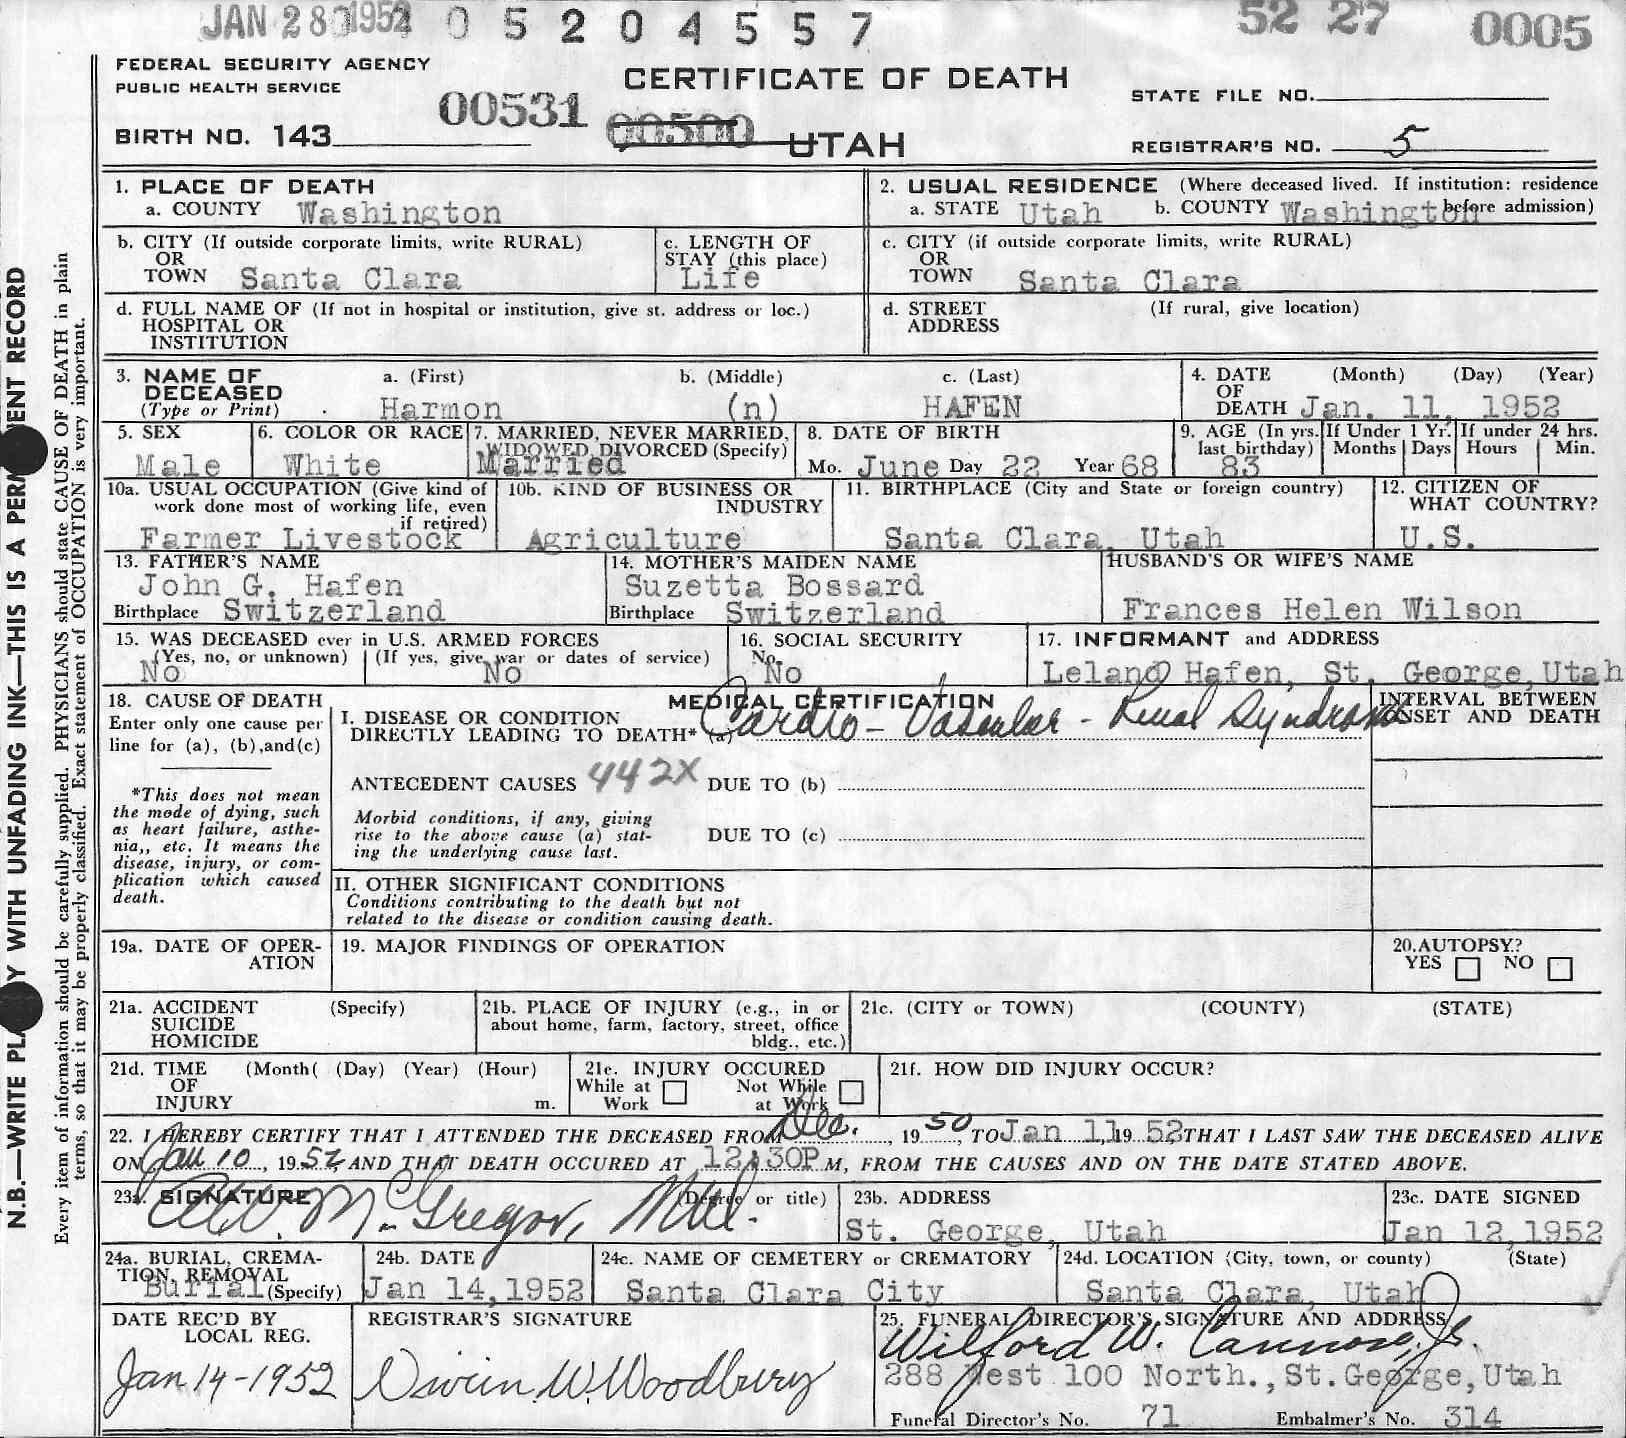 JAN 28 1952 0 5 2 0 4 5 5 7 52 27 0005
FEDERAL SECURITY AGENCY
PUBLIC HEALTH SERVICE
CERTIFICATE OF DEATH
STATE FILE NO.
00531 00500
BIRTH NO. 143
UTAH
REGISTRAR'S NO. 5
1. PLACE OF DEATH
a. COUNTY Washington
2. USUAL RESIDENCE (Where deceased lived. If institution: residence before admission)
a. STATE Utah b. COUNTY Washington
b. CITY (If outside corporate limits, write RURAL)
OR
TOWN Santa Clara
c. LENGTH OF
STAY (this place)
Life
c. CITY (if outside corporate limits, write RURAL)
OR
TOWN Santa Clara
d. FULL NAME OF (If not in hospital or institution, give st. address or loc.)
HOSPITAL OR
INSTITUTION
d. STREET (If rural, give location)
ADDRESS
3. NAME OF
DECEASED
(Type or Print)
a. (First) b. (Middle) c. (Last)
Harmon (n) HAFEN
4. DATE (Month) (Day) (Year)
OF
DEATH Jan. 11, 1952
5. SEX
Male
6. COLOR OR RACE
White
7. MARRIED, NEVER MARRIED,
WIDOWED, DIVORCED (Specify)
Married
8. DATE OF BIRTH
Mo. June Day 22 Year 68
9. AGE (In yrs.
last birthday)
83
If Under 1 Yr.
Months Days
If under 24 hrs.
Hours Min.
10a. USUAL OCCUPATION (Give kind of
work done most of working life, even
if retired)
Farmer Livestock
10b. KIND OF BUSINESS OR
INDUSTRY
Agriculture
11. BIRTHPLACE (City and State or foreign country)
Santa Clara, Utah
12. CITIZEN OF
WHAT COUNTRY?
U.S.
13. FATHER'S NAME
John G. Hafen
Birthplace Switzerland
14. MOTHER'S MAIDEN NAME
Suzetta Bossard
Birthplace Switzerland
HUSBAND'S OR WIFE'S NAME
Frances Helen Wilson
15. WAS DECEASED ever in U.S. ARMED FORCES
(Yes, no, or unknown) (If yes, give war or dates of service)
No No
16. SOCIAL SECURITY
No.
No
17. INFORMANT and ADDRESS
Leland Hafen, St. George, Utah
18. CAUSE OF DEATH
Enter only one cause per
line for (a), (b),and(c)
*This does not mean
the mode of dying, such
as heart failure, asthe-
nia,, etc. It means the
disease, injury, or com-
plication which caused
death.
MEDICAL CERTIFICATION
I. DISEASE OR CONDITION
DIRECTLY LEADING TO DEATH* (a) Cardio - Vascular - Renal Syndrome
INTERVAL BETWEEN
ONSET AND DEATH
ANTECEDENT CAUSES 442X DUE TO (b)
Morbid conditions, if any, giving
rise to the above cause (a) stat-
ing the underlying cause last.
DUE TO (c)
II. OTHER SIGNIFICANT CONDITIONS
Conditions contributing to the death but not
related to the disease or condition causing death.
19a. DATE OF OPER-
ATION
19. MAJOR FINDINGS OF OPERATION
20. AUTOPSY?
YES NO
21a. ACCIDENT (Specify)
SUICIDE
HOMICIDE
21b. PLACE OF INJURY (e.g., in or
about home, farm, factory, street, office
bldg., etc.)
21c. (CITY or TOWN) (COUNTY) (STATE)
21d. TIME (Month( (Day) (Year) (Hour)
OF
INJURY m.
21e. INJURY OCCURED
While at Work Not While at Work
21f. HOW DID INJURY OCCUR?
22. I HEREBY CERTIFY THAT I ATTENDED THE DECEASED FROM Dec. , 19 50, TO Jan 11, 19 52 THAT I LAST SAW THE DECEASED ALIVE
ON Jan 10, 1952, AND THAT DEATH OCCURED AT 12:30P M, FROM THE CAUSES AND ON THE DATE STATED ABOVE.
23a. SIGNATURE (Degree or title)
McGregor, M.D.
23b. ADDRESS
St. George, Utah
23c. DATE SIGNED
Jan 12, 1952
24a. BURIAL, CREMA-
TION, REMOVAL
Burial (Specify)
24b. DATE
Jan 14, 1952
24c. NAME OF CEMETERY or CREMATORY
Santa Clara City
24d. LOCATION (City, town, or county) (State)
Santa Clara, Utah
DATE REC'D BY
LOCAL REG.
Jan 14-1952
REGISTRAR'S SIGNATURE
W. Woodbury
25. FUNERAL DIRECTOR'S SIGNATURE AND ADDRESS
Wilford W. Cannon, Jr.
288 West 100 North., St. George, Utah
Funeral Director's No. 71 Embalmer's No. 314
N.B.—WRITE PLAINLY WITH UNFADING INK—THIS IS A PERMANENT RECORD
Every item of information should be carefully supplied. PHYSICIANS should state CAUSE OF DEATH in plain
terms, so that it may be properly classified. Exact statement of OCCUPATION is very important.